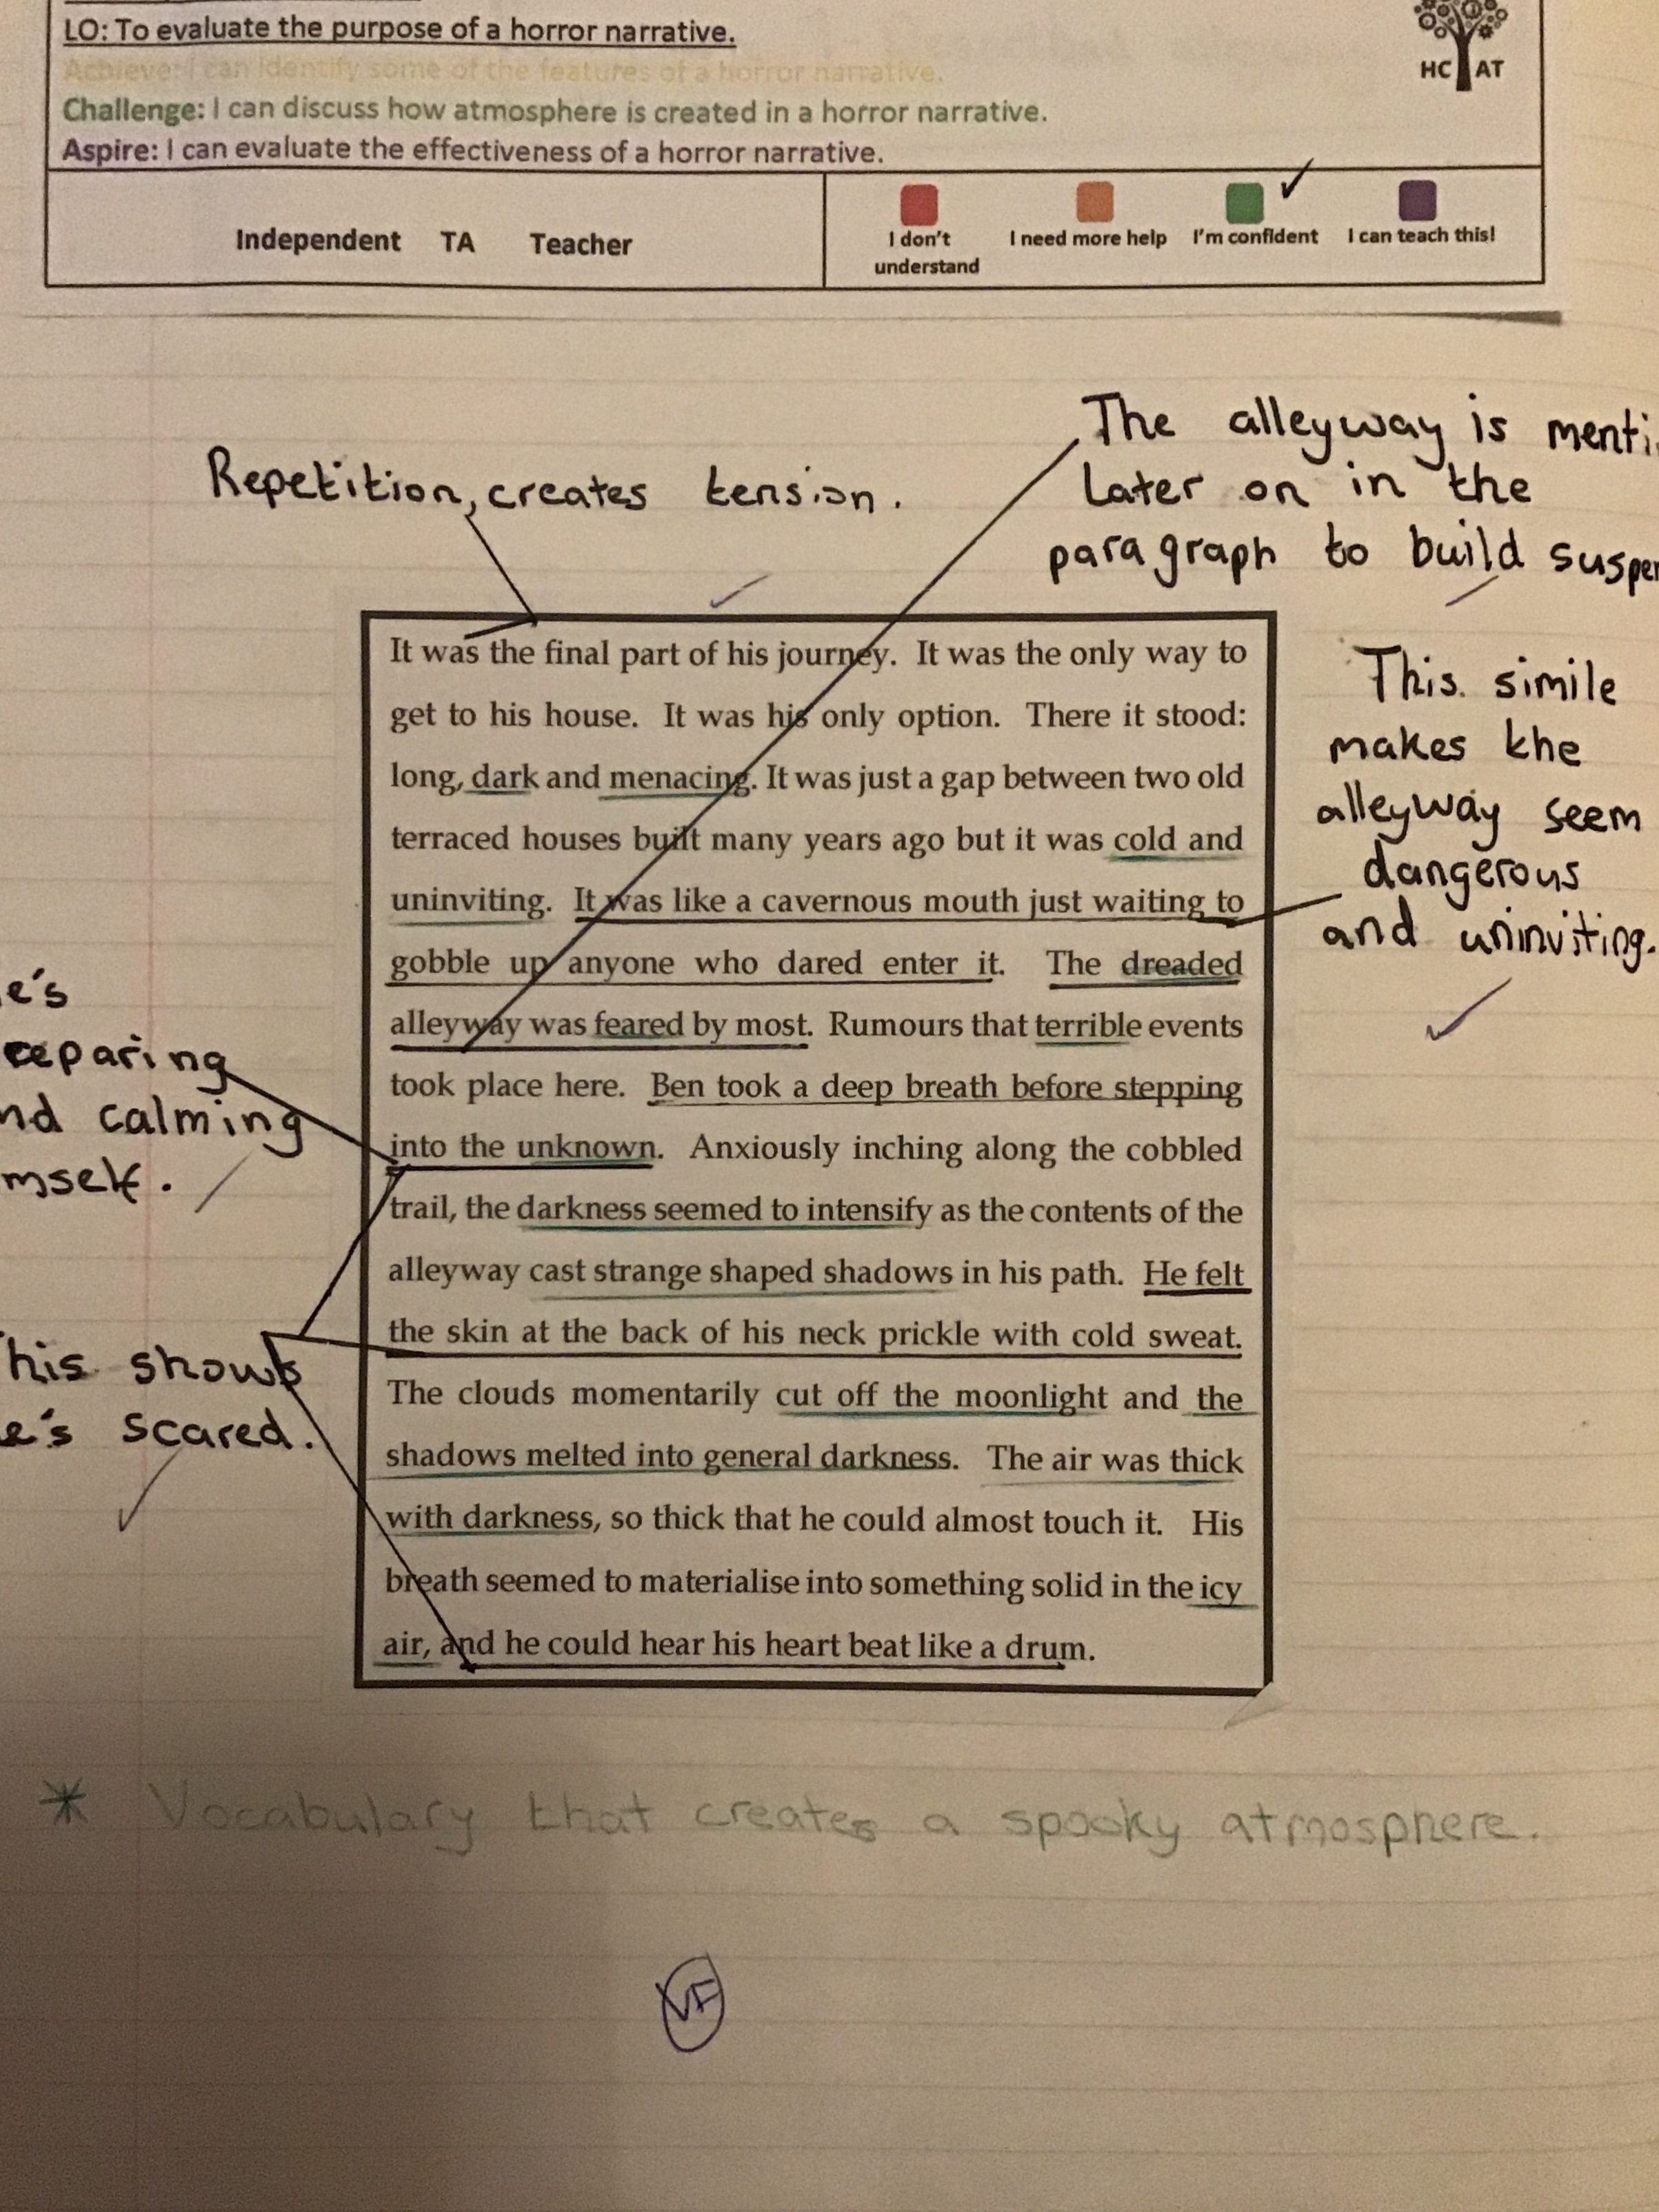 LO: To evaluate the purpose of a horror narrative.
Achieve: I can identify some of the features of a horror narrative.
Challenge: I can discuss how atmosphere is created in a horror narrative.
Aspire: I can evaluate the effectiveness of a horror narrative.
HC AT
Independent TA Teacher
I don't understand
I need more help
I'm confident
I can teach this!
Repetition, creates tension.
The alleyway is menti
later on in the
paragraph to build suspen
This simile
makes the
alleyway seem
dangerous
and uninviting.
e's
reparing
nd calming
mself.
his shows
e's scared.
It was the final part of his journey. It was the only way to
get to his house. It was his only option. There it stood:
long, dark and menacing. It was just a gap between two old
terraced houses built many years ago but it was cold and
uninviting. It was like a cavernous mouth just waiting to
gobble up anyone who dared enter it. The dreaded
alleyway was feared by most. Rumours that terrible events
took place here. Ben took a deep breath before stepping
into the unknown. Anxiously inching along the cobbled
trail, the darkness seemed to intensify as the contents of the
alleyway cast strange shaped shadows in his path. He felt
the skin at the back of his neck prickle with cold sweat.
The clouds momentarily cut off the moonlight and the
shadows melted into general darkness. The air was thick
with darkness, so thick that he could almost touch it. His
breath seemed to materialise into something solid in the icy
air, and he could hear his heart beat like a drum.
* Vocabulary that creates a spooky atmosphere.
VF